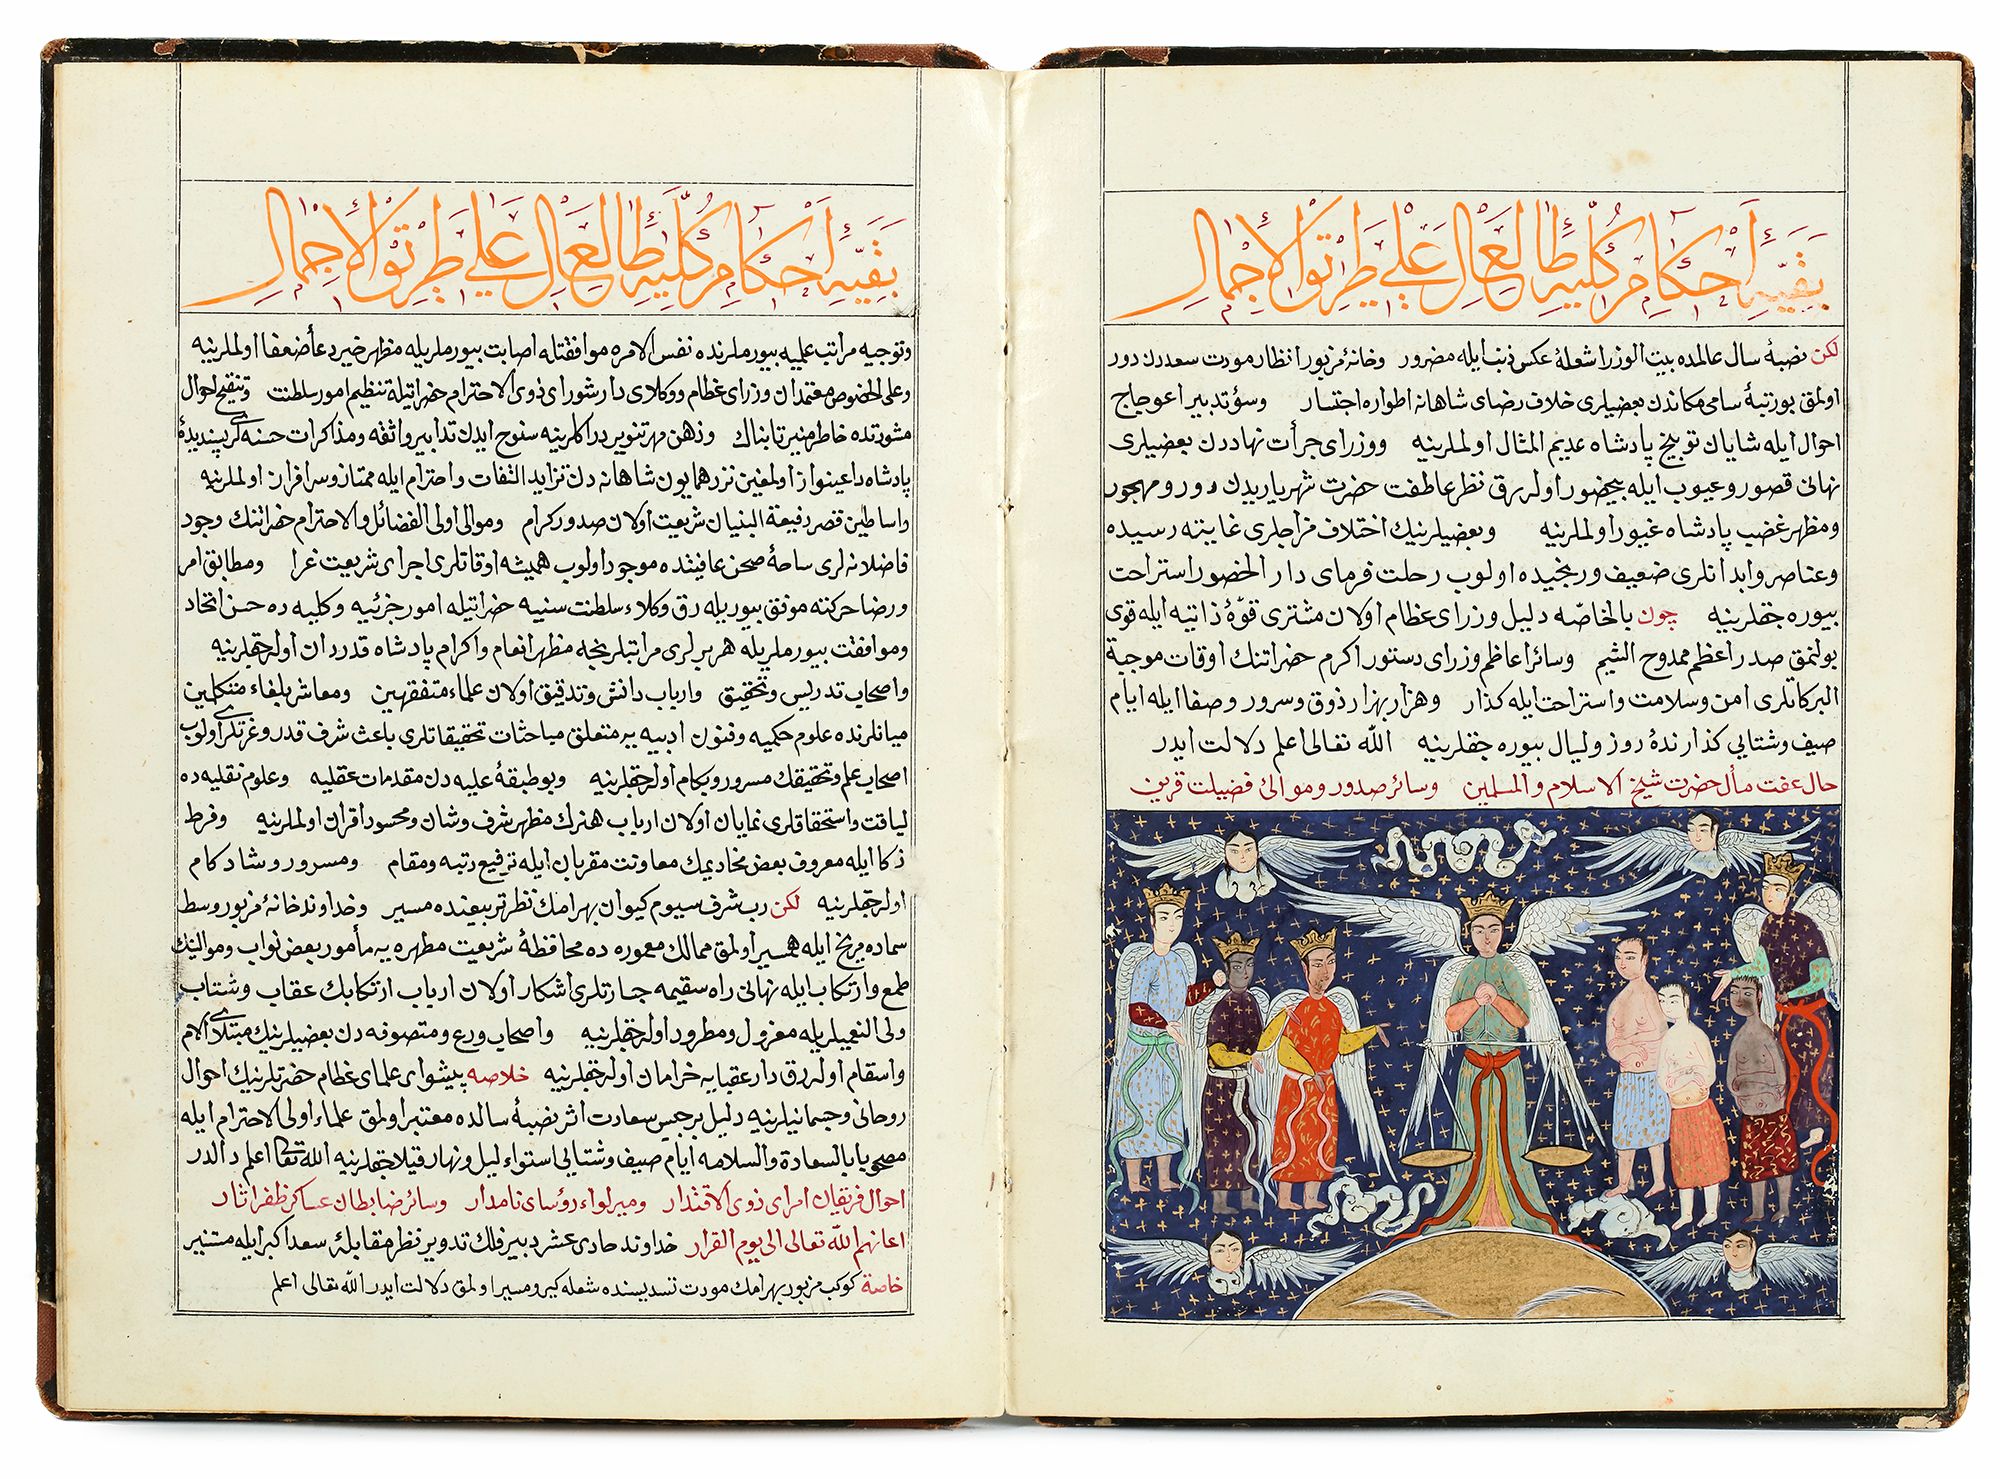 بقيّه احكام كلّيه طالع سال على طريق الاجمال
لكن نصبۀ سال عالمده بيت الوزرا شعلۀ عكس ذنب ايله مضرور وخانۀ مزبور انظار مودت سعددن دور
اولمق بو رتبۀ سامى مكاندن بعضيلرى خلاف رضاى شاهانه اطواره اجتسار وسؤ تدبير اعوجاج
احوال ايله شايان توبيخ پادشاه عديم المثال اولملرينه ووزراى جرأت نهاددن بعضيلرى
نهانى قصور وعيوب ايله بيحضور اولهرق نظر عاطفت حضرت شهرياريدن دور ومهجور
ومظهر غضب پادشاه غيور اولملرينه وبعضيلرينك اختلاف مزاجلرى غايته رسيده
وعناصر وابدانلرى ضعيف ورنجيده اولوب رحلت فرماى دار الحضور استراحت
بيوره جقلرينه چون بالخاصّه دليل وزراى عظام اولان مشترى قوّۀ ذاتيه ايله قوى
بولنمق صدر اعظم ممدوح الشيم وسائر اعاظم وزراى دستور اكرم حضراتنك اوقات موجبة
البركاتلرى امن وسلامت واستراحت ايله كذار وهزار بهزار ذوق وسرور وصفا ايله ايام
صيف وشتايى كذارندۀ روز وليال بيوره جقلرينه الله تعالى اعلم دلالت ايدر
حال عفت مأل حضرت شيخ الاسلام والمسلمين وسائر صدور وموالئ فضيلت قرين
بقيّه احكام كلّيه طالع سال على طريق الاجمال
وتوجيه مراتب علميه بيورملرنده نفس الامره موافقتله اصابت بيورملريله مظهر خير دعأ ضعفا اولملرينه
وعلى الخصوص معتمدان وزراى عظام ووكلاى دار شوراى ذوى الاحترام حضراتيله تنظيم امور سلطنت وتنقيح احوال
مشورتده خاطر منير تابناك وذهن مهر تنوير دراكلرينه سنوح ايدن تدابير واثقه ومذاكرات حسنه لرى پسنديدۀ
پادشاه داعينواز اولمغين نزد همايون شاهانه دن تزايد التفات واحترام ايله ممتاز وسرافراز اولملرينه
واساطين قصر رفيعة البنيان شريعت اولان صدور كرام وموالى اولى الفضائل والاحترام حضراتنك وجود
فاضلانه لرى ساحۀ صحن عافيتده موجود اولوب هميشه اوقاتلرى اجراى شريعت غرا ومطابق امر
ورضا حركته موفق بيوريله رق وكلاء سلطنت سنيه حضراتيله امور جزئيه وكليه ده حسن اتحاد
وموافقت بيورملريله هر برلرى مراتبلرنجه مظهر انعام واكرام پادشاه قدردان اولهجقلرينه
واصحاب تدريس وتحقيق وارباب دانش وتدقيق اولان علماء متفقهين ومعاشر بلغاء متكلمين
ميانلرنده علوم حكميه وفنون ادبيه يه متعلق مباحثات تحقيقاتلرى باعث شرف قدر وعزتلرى اولوب
اصحاب علم وتحقيقك مسرور وبكام اولهجقلرينه وبو طبقۀ عليه دن مقدمات عقليه وعلوم نقليه ده
لياقت واستحقاقلرى نمايان اولان ارباب هنرك مظهر شرف وشان ومحسود اقران اولملرينه وفرط
ذكا ايله معروف بعض مخاديمك معاونت مقربان ايله ترفيع رتبه ومقام ومسرور وشادكام
اولهجقلرينه لكن رب شرف سيوم كيوان بهرامك نظر تربيعنده مسير وخداوند خانۀ مزبور وسط
سماده مريخ ايله همسير اولمق ممالك معموره ده محافظۀ شريعت مطهره يه مأمور بعض نواب وموالينك
طمع وارتكاب ايله نهانى راه سقيمه جسارتلرى اشكار اولان ارباب ارتكابك عقاب وشتاب
ولى النعميلريله معزول ومطرود اولهجقلرينه واصحاب ورع ومتصوفه دن بعضيلرينك مبتلاى آلام
واسقام اوله رق دار عقبايه خرامان اولهجقلرينه خلاصه پيشواى علماى عظام حضرتلرينك احوال
روحانى وجسمانيلرينه دليل برجيس سعادت اثر نصبۀ سالده معتبر اولمق علماء اولى الاحترام ايله
مصحوبا بالسعادة والسلامه ايام صيف وشتايى استواء ليل ونهار قيلاجقلرينه الله تعالى اعلم دالدر
احوال فريقان امراى ذوى الاقتدار وميرلواء رؤساى نامدار وسائر ضابطان عساكر ظفر اثار
اعانهم الله تعالى الى يوم القرار خداوند حادى عشر دبير فلك تدوير نظر مقابلۀ سعد اكبر ايله مستنير
خاصة كوكب مزبور بهرامك مودت تسديسنده شعله كير ومسير اولمق دلالت ايدر الله تعالى اعلم